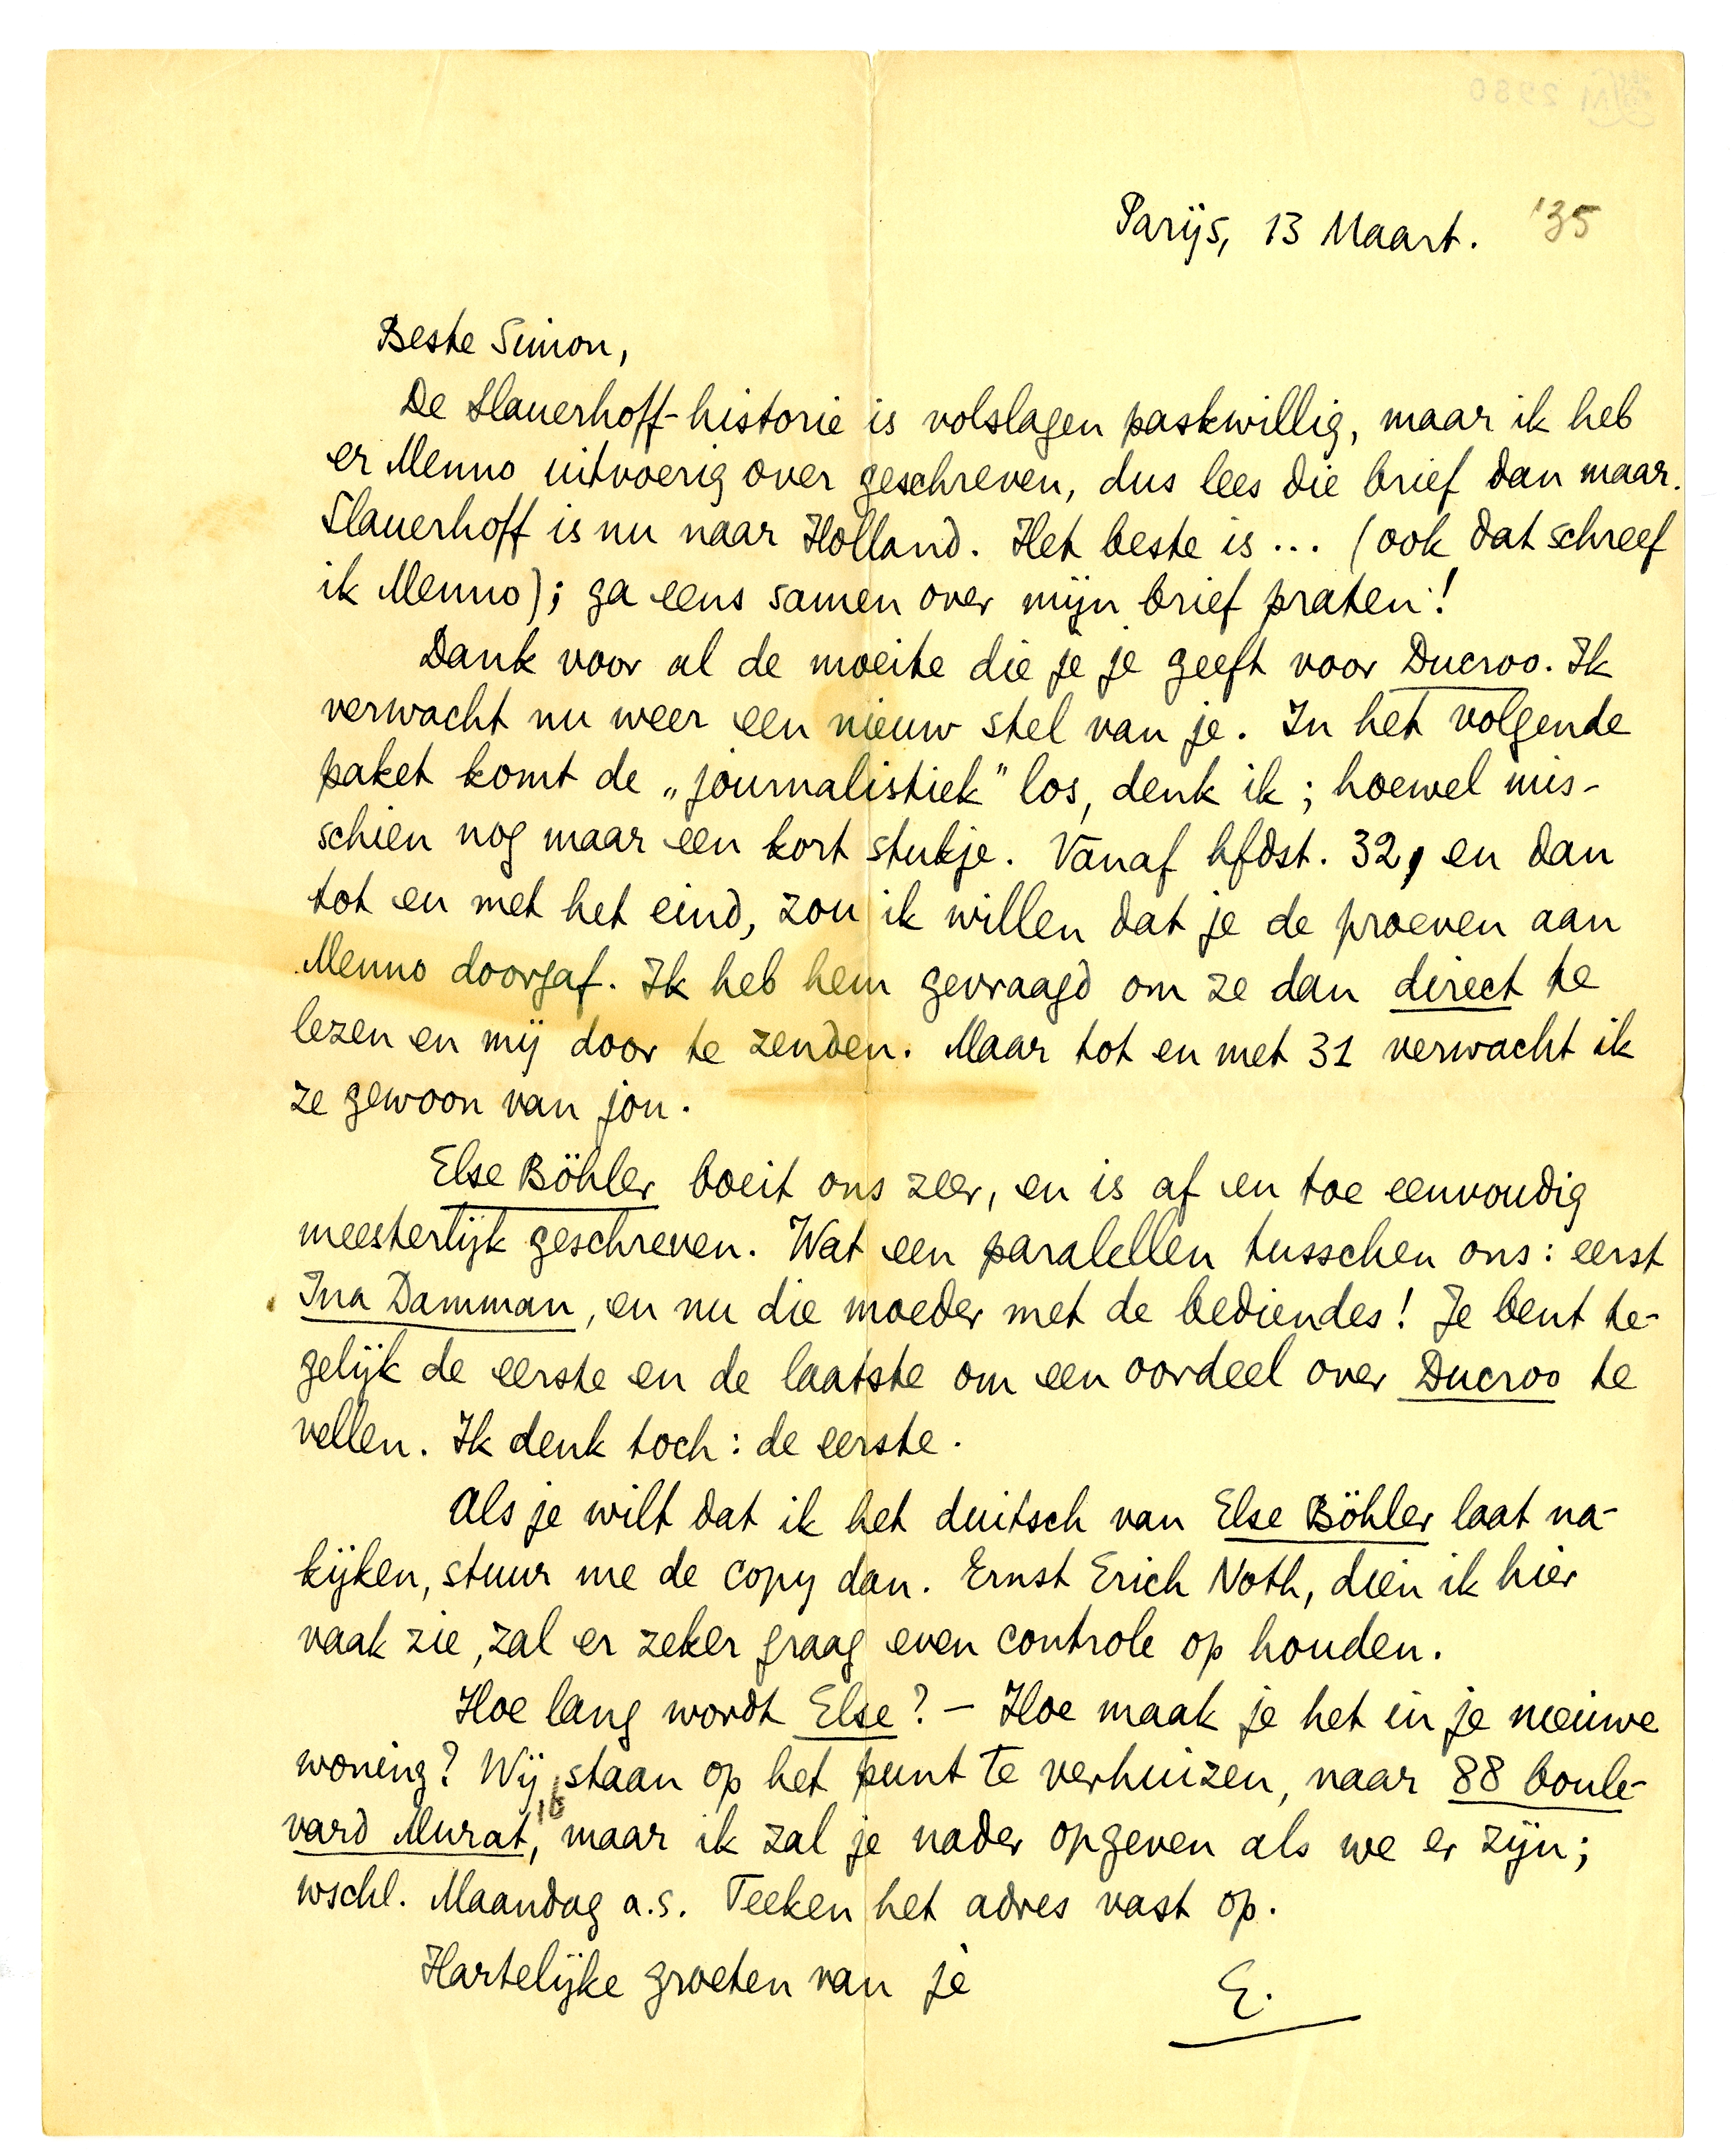 Parijs, 13 Maart. '35
Beste Simon,
De Slauerhoff-historie is volslagen paskwillig, maar ik heb
er Menno uitvoerig over geschreven, dus lees die brief dan maar.
Slauerhoff is nu naar Holland. Het beste is... (ook dat schreef
ik Menno); ga eens samen over mijn brief praten!
Dank voor al de moeite die je je geeft voor Ducroo. Ik
verwacht nu weer een nieuw stel van je. In het volgende
paket komt de „journalistiek” los, denk ik; hoewel mis-
schien nog maar een kort stukje. Vanaf hfdst. 32, en dan
tot en met het eind, zou ik willen dat je de proeven aan
Menno doorgaf. Ik heb hem gevraagd om ze dan direct te
lezen en mij door te zenden. Maar tot en met 31 verwacht ik
ze gewoon van jou.
Else Böhler boeit ons zeer, en is af en toe eenvoudig
meesterlijk geschreven. Wat een paralellen tusschen ons: eerst
Ina Damman, en nu die moeder met de bediendes! Je bent te-
gelijk de eerste en de laatste om een oordeel over Ducroo te
vellen. Ik denk toch: de eerste.
Als je wilt dat ik het duitsch van Else Böhler laat na-
kijken, stuur me de copy dan. Ernst Erich Noth, dien ik hier
vaak zie, zal er zeker graag even controle op houden.
Hoe lang wordt Else? – Hoe maak je het in je nieuwe
woning? Wij staan op het punt te verhuizen, naar 88 boule-
vard Murat, 16 maar ik zal je nader opgeven als we er zijn;
wschl. Maandag a.s. Teeken het adres vast op.
Hartelijke groeten van je
E.